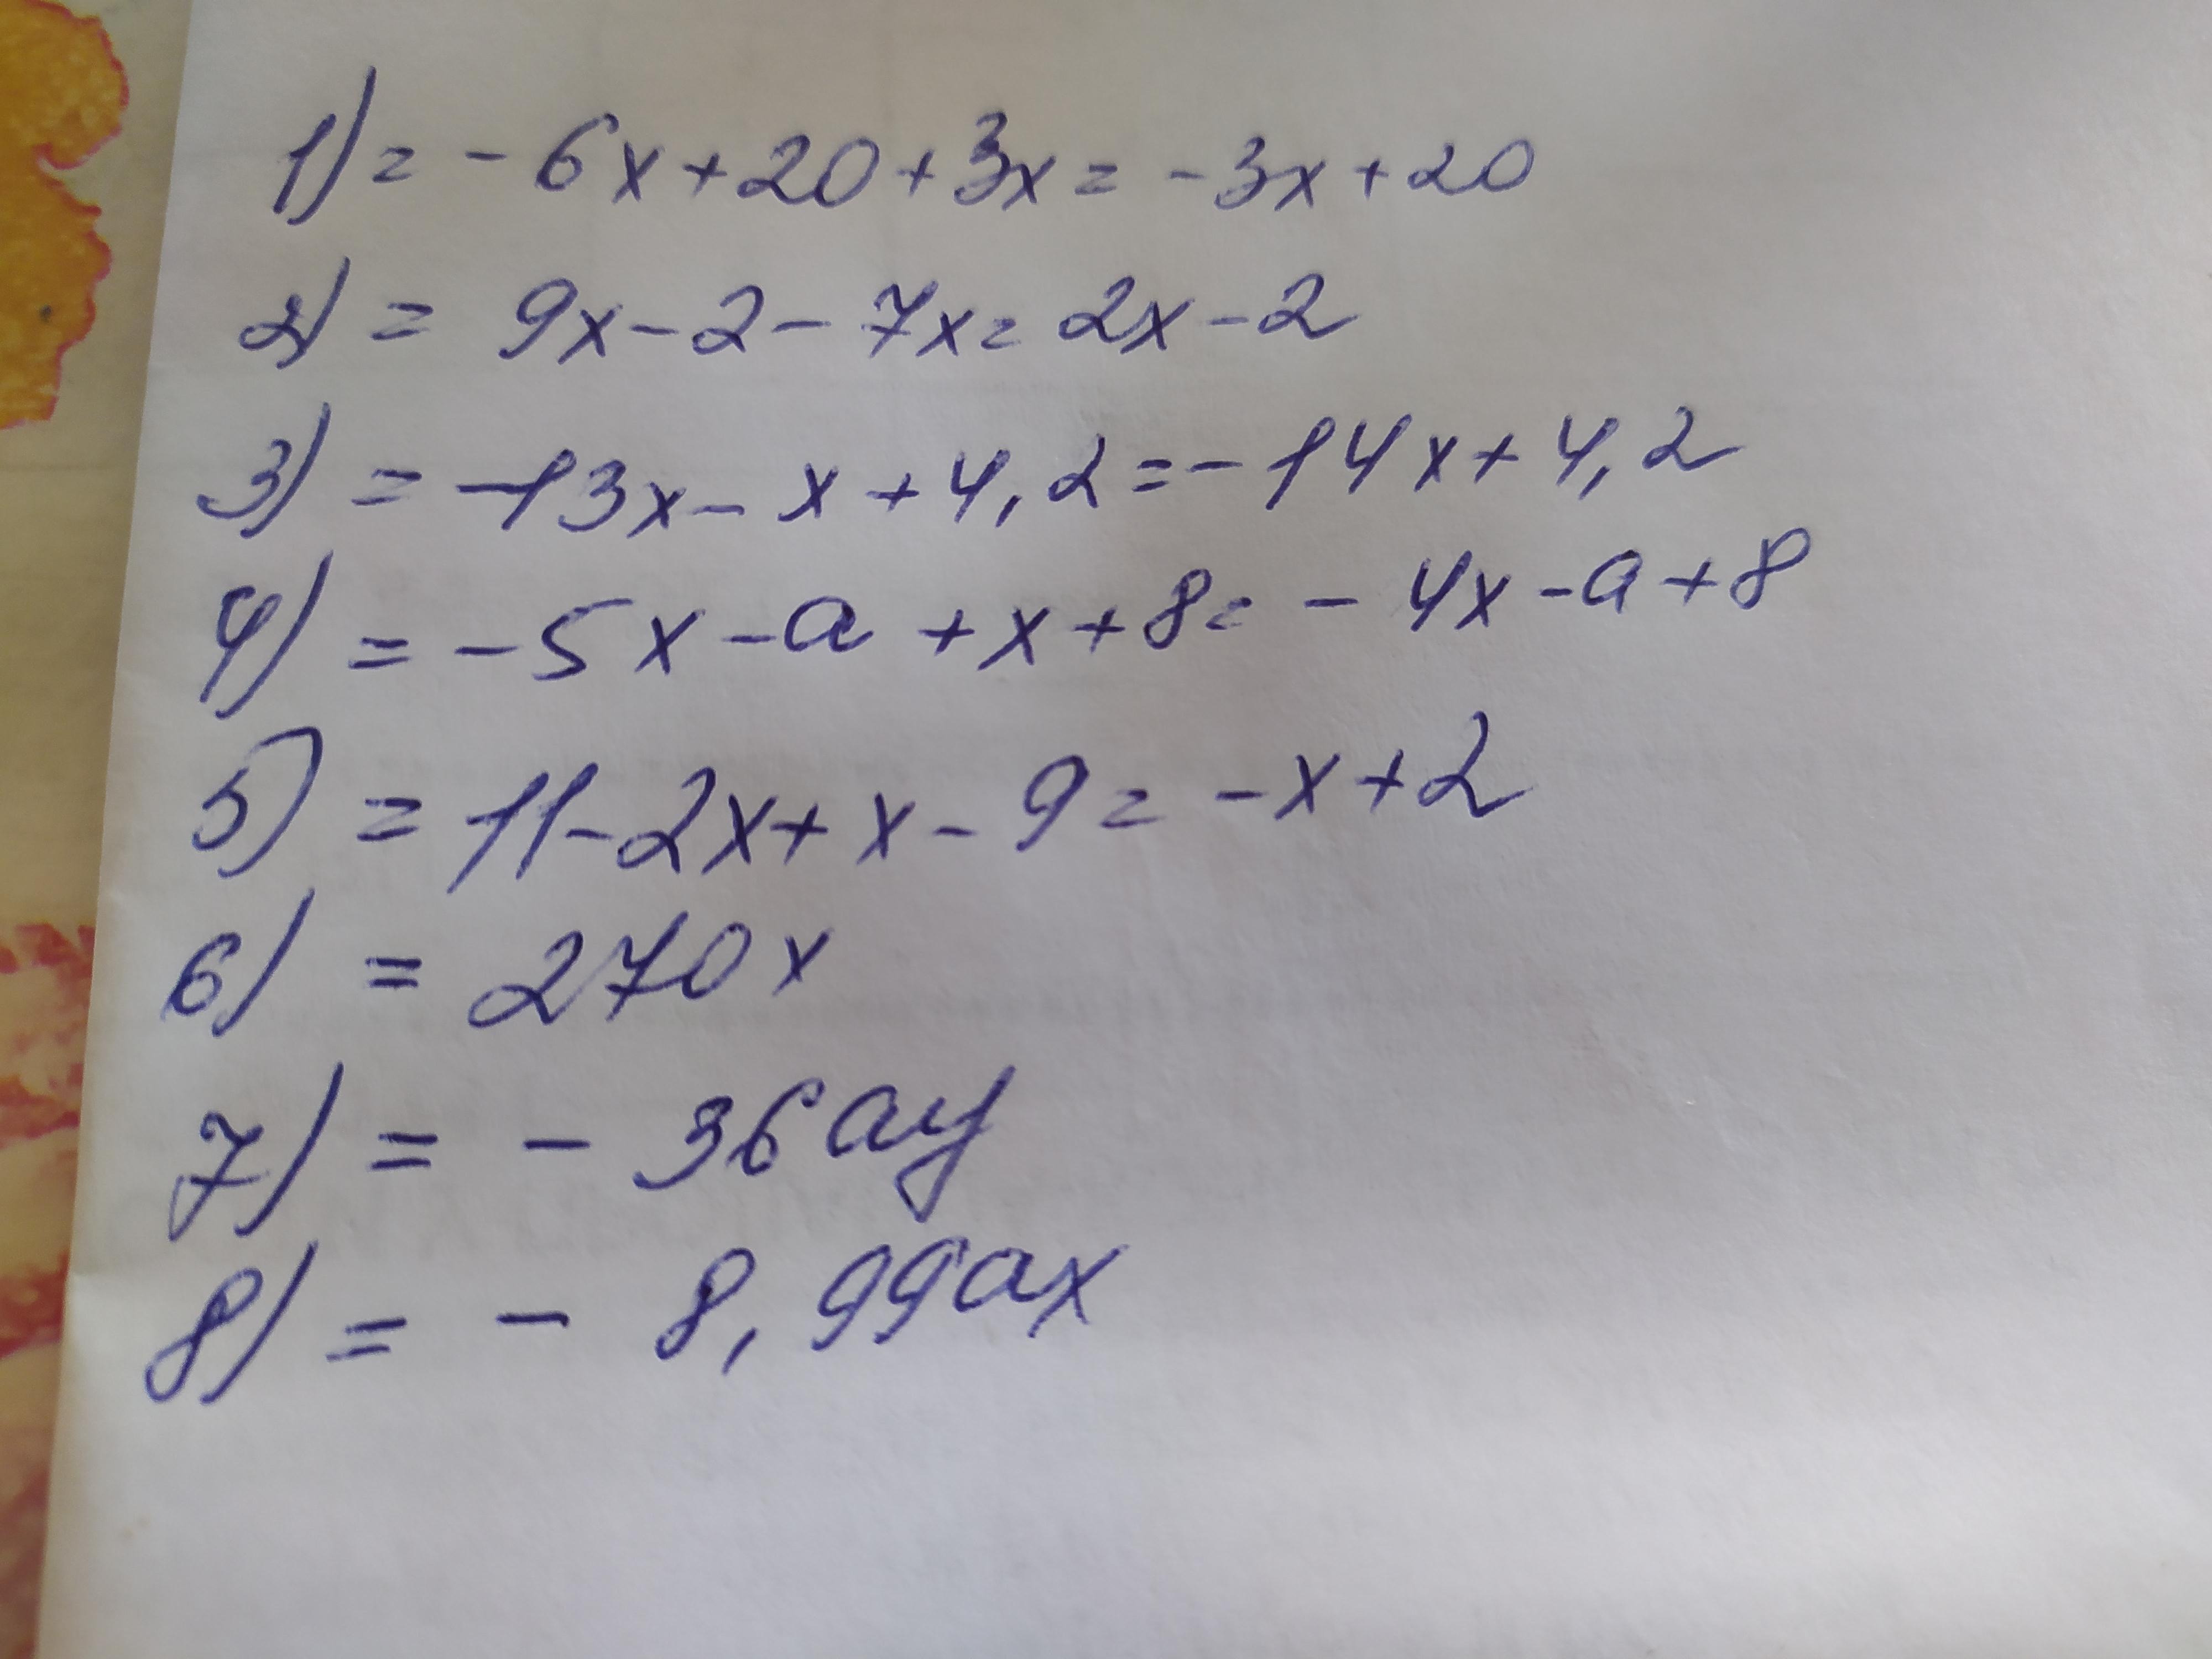 1) = - 6x + 20 + 3x = - 3x + 20
2) = 9x - 2 - 7x = 2x - 2
3) = - 13x - x + 4,2 = - 14x + 4,2
4) = - 5x - a + x + 8 = - 4x - a + 8
5) = 11 - 2x + x - 9 = - x + 2
6) = 270x
7) = - 36ay
8) = - 8,99ax